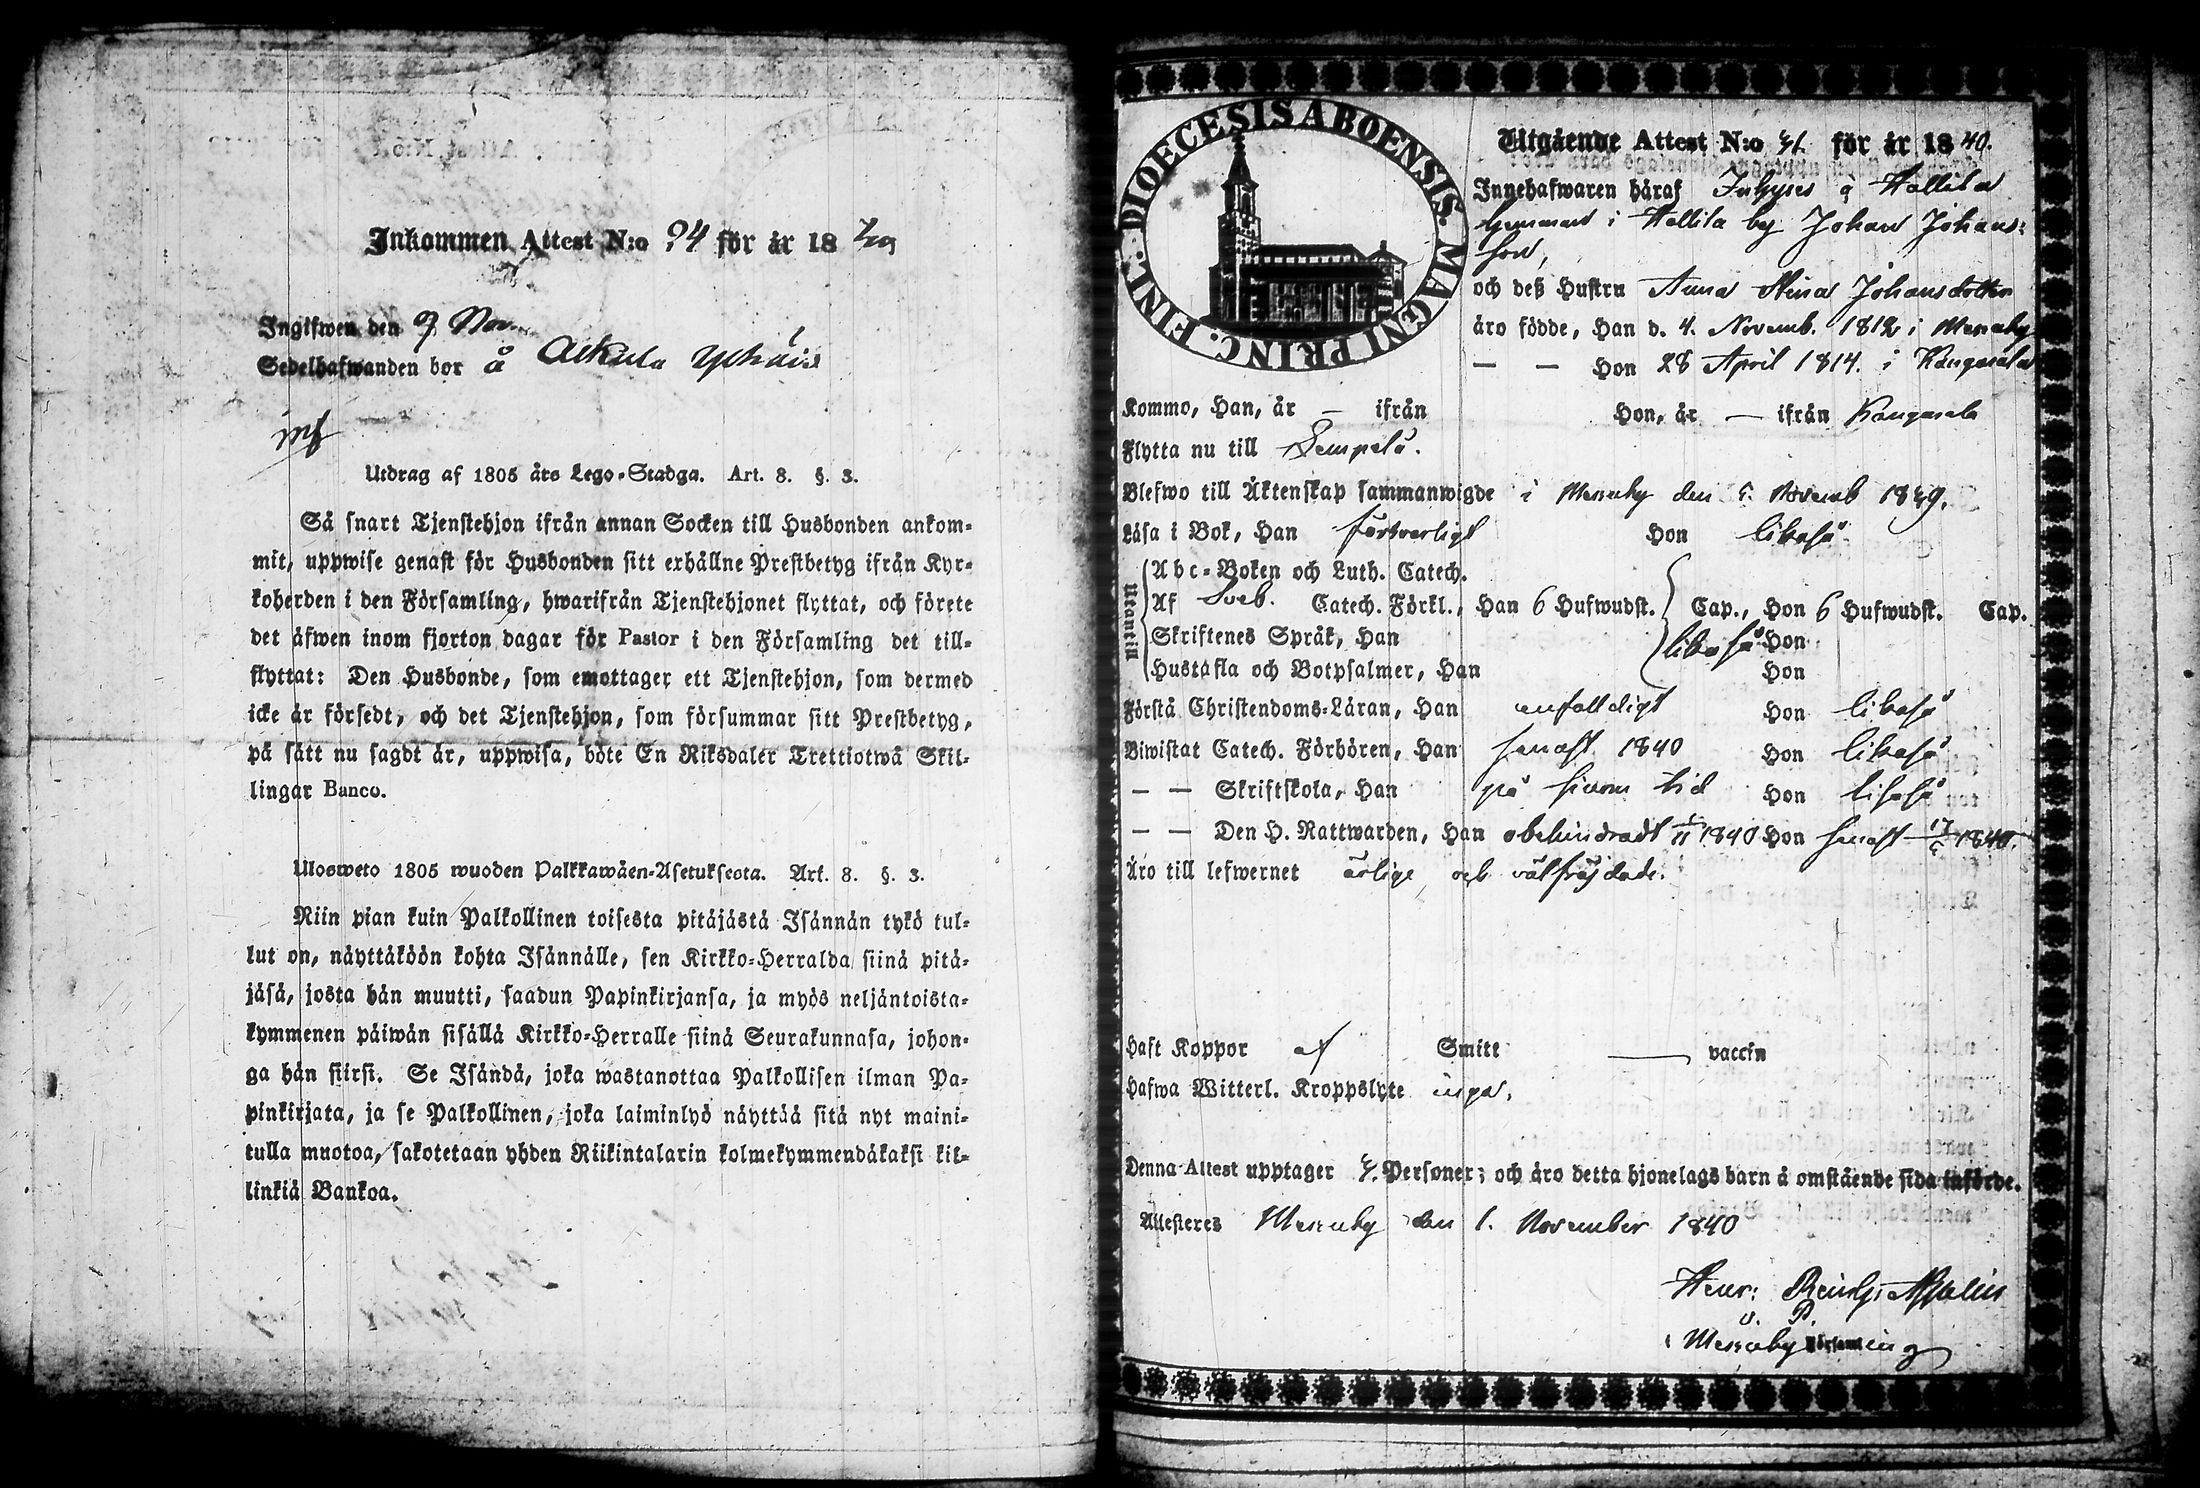 Inkommen Attest N:o 94 för år 18 40
Ingifwen den 9 Nov.
Sedelhafwanden bor å Alkula
Utdrag af 1805 års Lego-Stadga. Art. 8. §. 3.
Så snart Tjenstehjon ifrån annan Socken till Husbonden ankom-
mit, uppwise genast för Husbonden sitt erhållne Prestbetyg ifrån Kyr-
koherden i den Församling, hwarifrån Tjenstehjonet flyttat, och förete
det äfwen inom fjorton dagar för Pastor i den Församling det till-
flyttat: Den Husbonde, som emottager ett Tjenstehjon, som dermed
icke är försedt, och det Tjenstehjon, som försummar sitt Prestbetyg,
på sätt nu sagdt är, uppwisa, böte En Riksdaler Trettiotwå Skil-
lingar Banco.
Ulosweto 1805 wuoden Palkkawäen-Asetuksesta. Art. 8. §. 3.
Niin pian kuin Palkollinen toisesta pitäjästä Isännän tykö tul-
lut on, näyttäköön kohta Isännälle, sen Kirkko-Herralda siinä pitä-
jäsä, josta hän muutti, saadun Papinkirjansa, ja myös neljäntoista-
kymmenen päiwän sisällä Kirkko-Herralle siinä Seurakunnasa, johon-
ga hän siirsi. Se Isändä, joka wastanottaa Palkollisen ilman Pa-
pinkirjata, ja se Palkollinen, joka laiminlyö näyttää sitä nyt maini-
tulla muotoa, sakotetaan yhden Riikintalarin kolmekymmendäkaksi kil-
linkiä Bankoa.
DIOECESIS ABOENSIS. MAGNI PRINC. FINL.
Utgående Attest N:o 41. för år 18 40.
Innehafwaren häraf Inhyses å Hallila
hemman i Hallila by Johan Johans-
son,
och deß Hustru Anna Stina Johansdotter
äro födde, Han d. 4. Novemb. 1812 i Messuby
— — Hon 28 April 1814. i Kangasala
Kommo, Han, år — ifrån Hon, år — ifrån Kangasala
Flytta nu till Lempelä.
Blefwo till Äktenskap sammanwigde i Messuby den Novemb
Läsa i Bok, Han försvarligt Hon likaså
Utantill
Abc-Boken och Luth. Catech.
Af Sveb. Catech. Förkl., Han 6 Hufwudst. Cap., Hon 6 Hufwudst. Cap.
Skriftenes Språk, Han likaså Hon
Hustafla och Botpsalmer, Han Hon
Förstå Christendoms-Läran, Han enfaldigt Hon likaså
Biwistat Catech. Förhören, Han senast 1840 Hon likaså
— — Skriftskola, Han på sinom tid Hon likaså
— — Den H. Nattwarden, Han obehindradt 1840 Hon senast 1840.
Äro till lefwernet ärlige och välfräjdade.
Haft Koppor af Smitt — vaccin
Hafwa Witterl. Kroppslyte inga.
Denna Attest upptager 4. Personer; och äro detta hjonelags barn å omstående sida införde.
Attesteras Messuby den 1. November 1840
Henr:
v. P.
i Messuby Församling